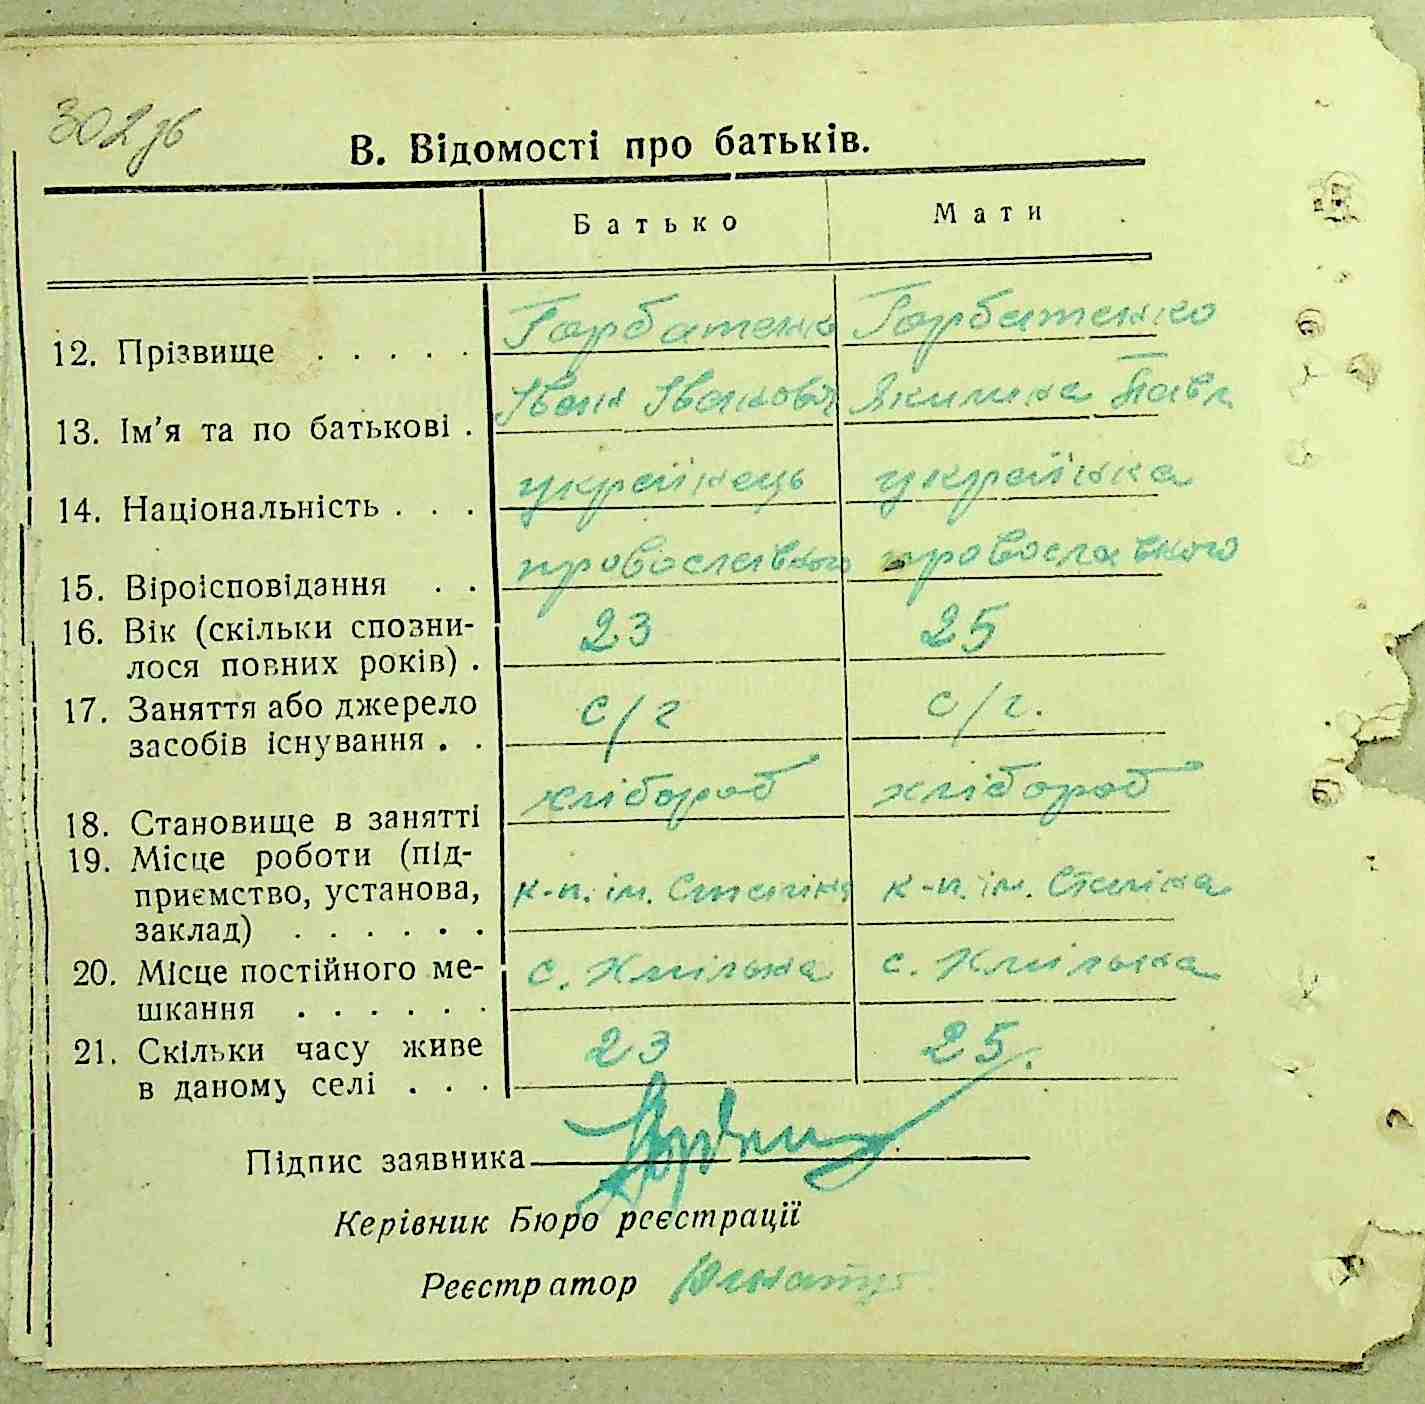 302
В. Відомості про батьків.
Батько Мати
12. Прізвище . . . . . Горбатенко Горбатенко
13. Ім'я та по батькові . Іван Іванович Якилина Павл
14. Національність . . . українець українка
15. Віроісповідання . . провославного провославного
16. Вік (скільки сповни-
лося повних років) . 23 25
17. Заняття або джерело
засобів існування . . с/г с/г.
18. Становище в занятті хлібороб хлібороб
19. Місце роботи (під-
приємство, установа,
заклад) . . . . . . к-п. ім. Сталіна к-п. ім. Сталіна
20. Місце постійного ме-
шкання . . . . . . с. Хмільна с. Хмільна
21. Скільки часу живе
в даному селі . . . 23 25.
Підпис заявника
Керівник Бюро реєстрації
Реєстратор